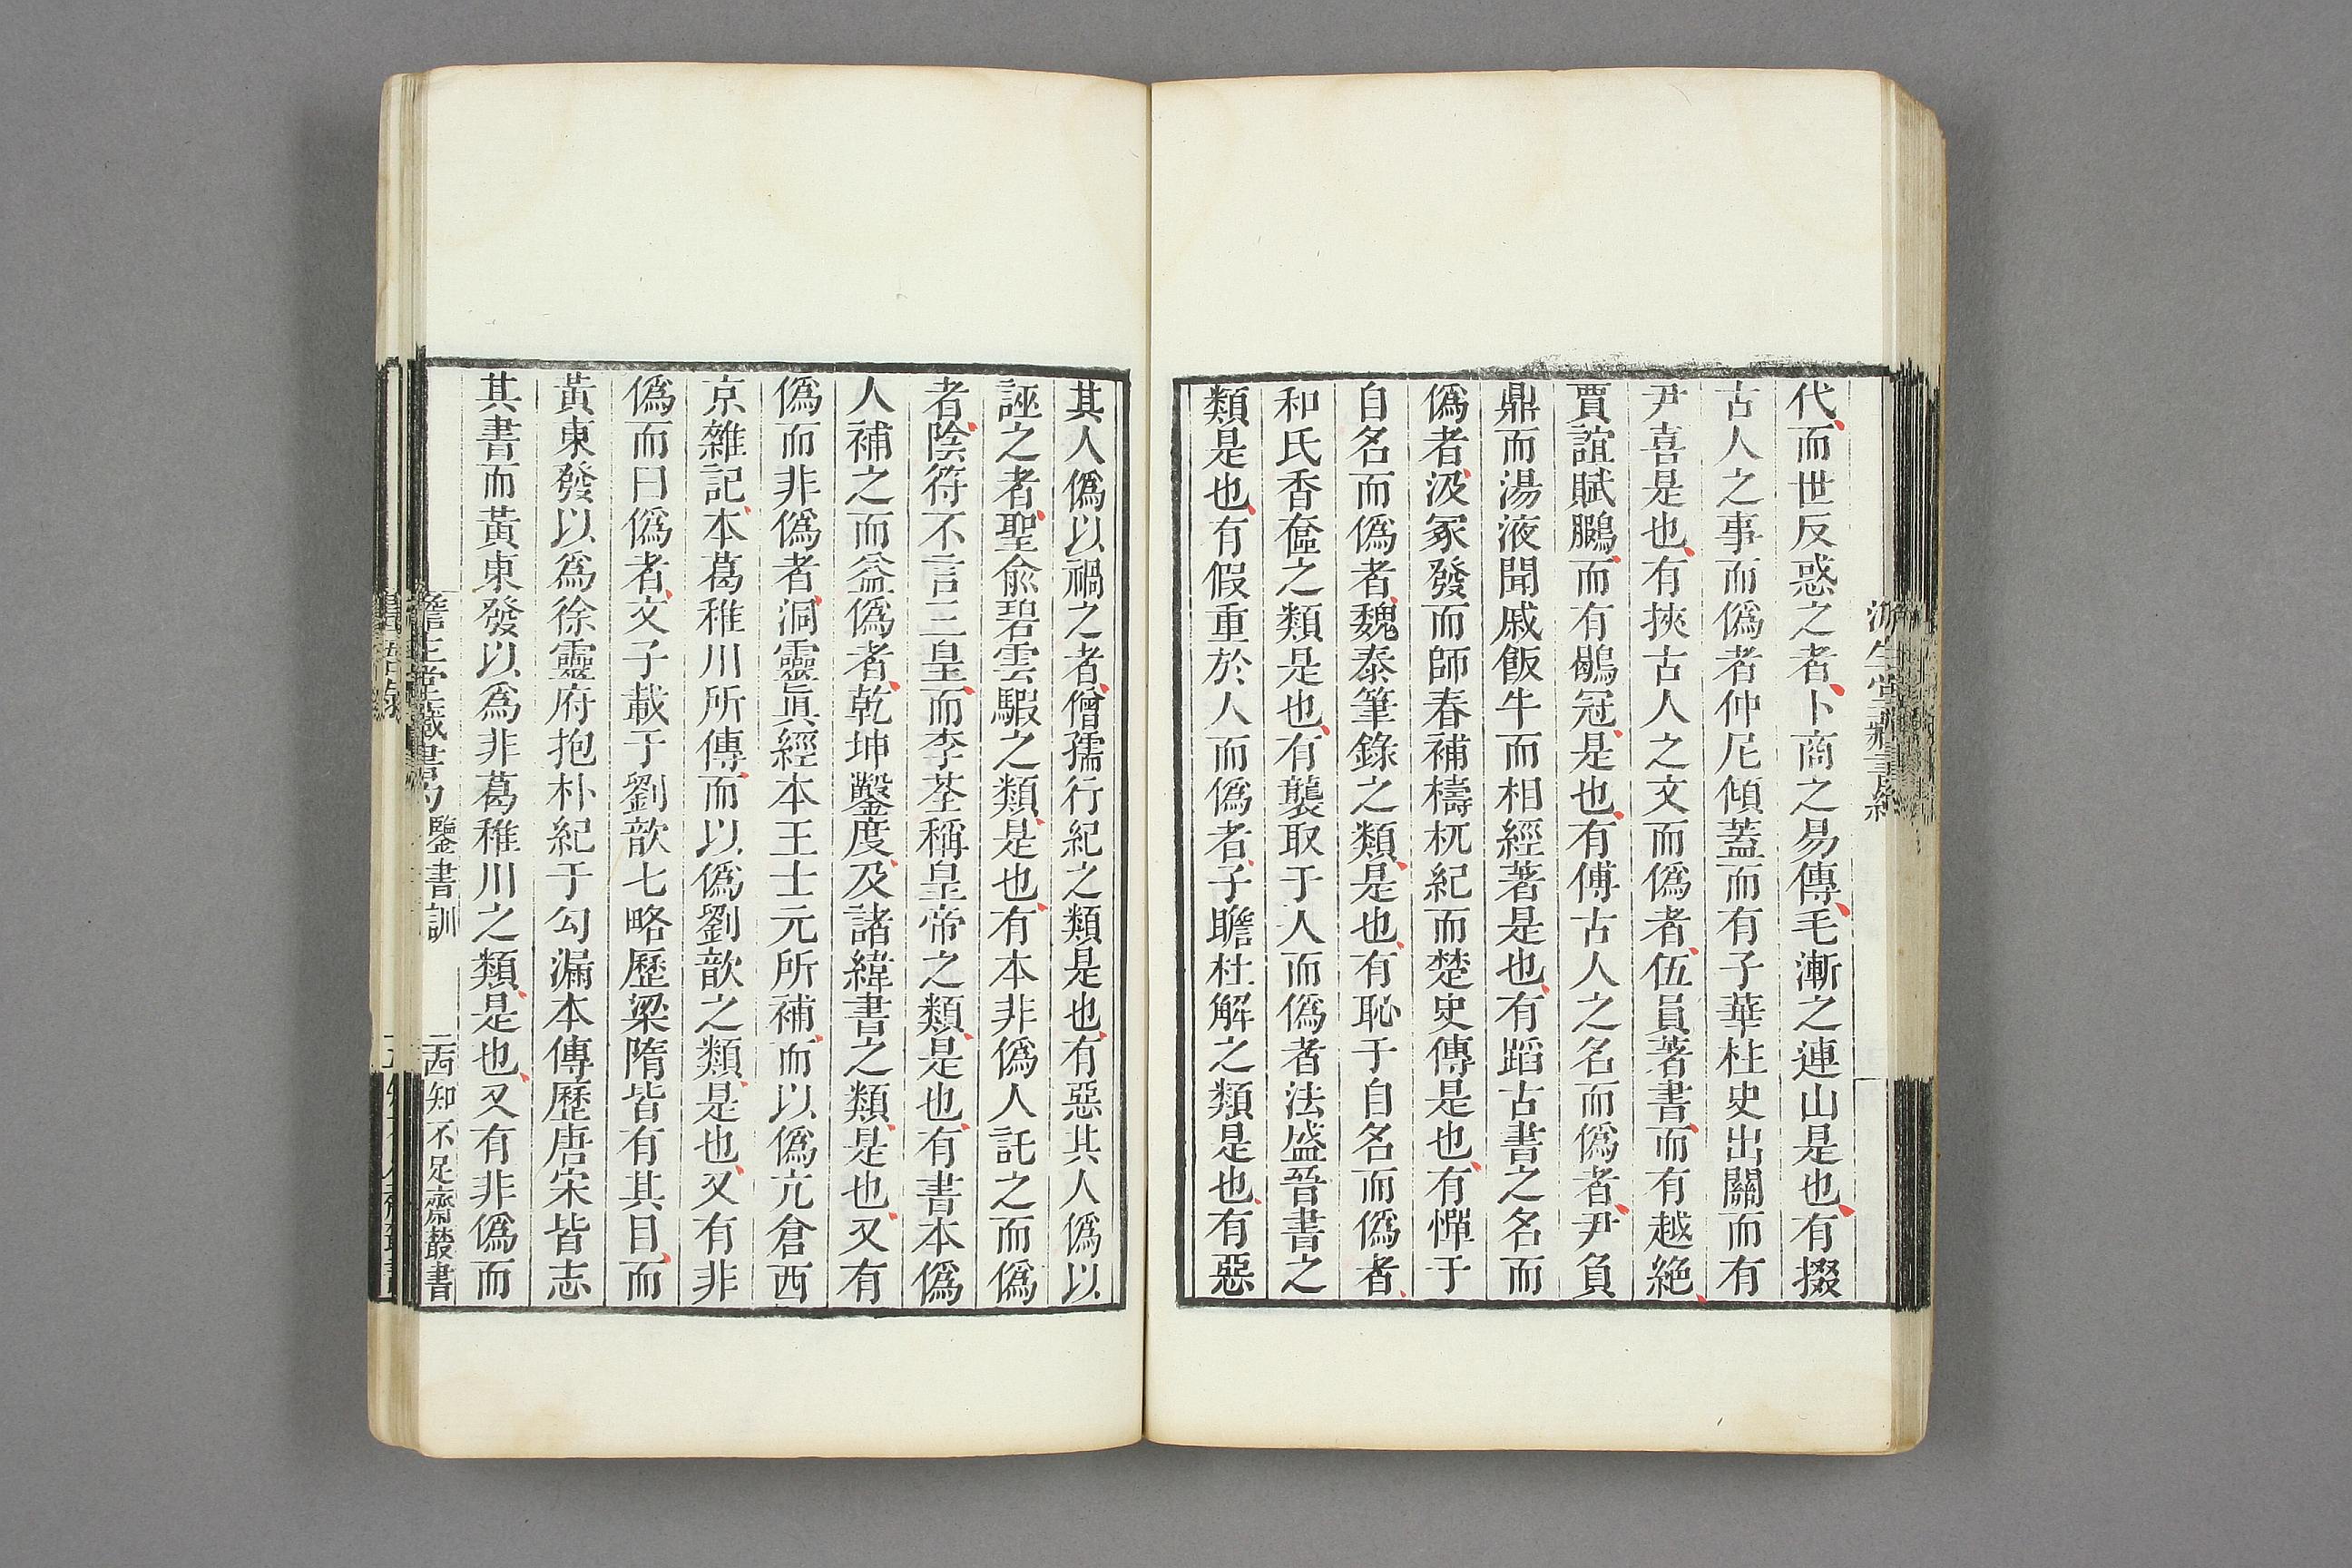 代而世反惑之者卜商之易傳毛漸之連山是也有掇
古人之事而僞者仲尼傾蓋而有子華柱史出關而有
尹喜是也有挾古人之文而僞者伍員著書而有越絶
賈誼賦鵩而有鶡冠是也有傅古人之名而僞者尹負
鼎而湯液聞戚飯牛而相經著是也有蹈古書之名而
僞者汲冢發而師春補檮杌紀而楚史傳是也有憚于
自名而僞者魏泰筆錄之類是也有恥于自名而僞者
和氏香奩之類是也有襲取于人而僞者法盛晉書之
類是也有假重於人而僞者子瞻杜解之類是也有惡
其人僞以禍之者僧孺行紀之類是也有惡其人僞以
誣之者聖俞碧雲騢之類是也有本非僞人託之而僞
者陰符不言三皇而李荃稱皇帝之類是也有書本僞
人補之而益僞者乾坤鑿度及諸緯書之類是也又有
僞而非僞者洞靈眞經本王士元所補而以僞亢倉西
京雜記本葛稚川所傳而以僞劉歆之類是也又有非
僞而曰僞者文子載于劉歆七略歷梁隋皆有其目而
黃東發以爲徐靈府抱朴紀于勾漏本傳歷唐宋皆志
其書而黃東發以爲非葛稚川之類是也又有非僞而
澹生堂藏書約 鑒書訓 二西 知不足齋叢書